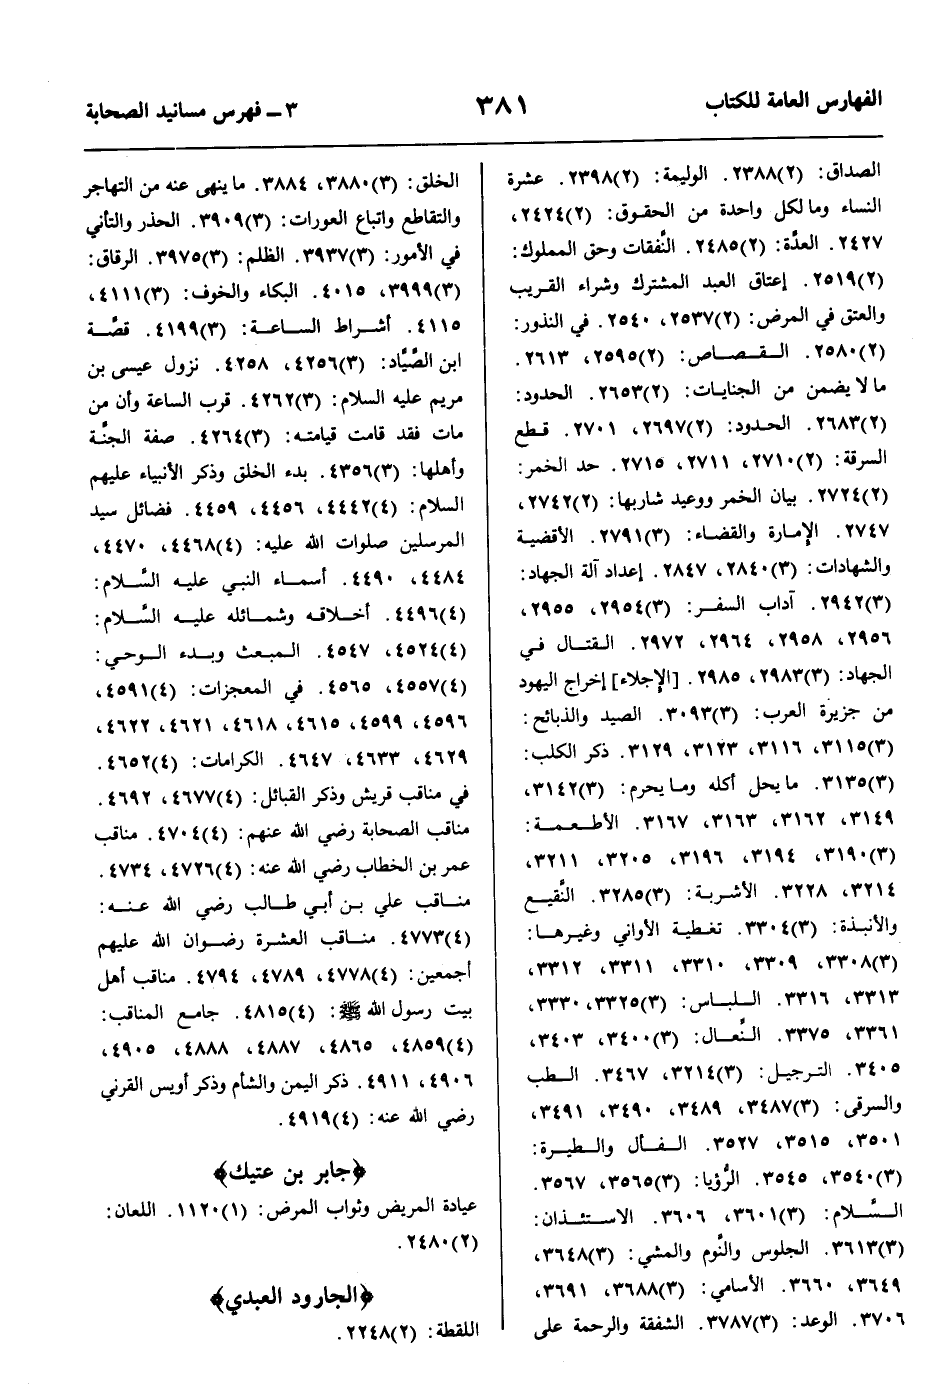 الفهارس العامة للكتاب ٣٨١ ٣ ـ فهرس مسانيد الصحابة
الصداق: (٢)٢٣٨٨. الوليمة: (٢)٢٣٩٨. عشرة
النساء وما لكل واحدة من الحقوق: (٢)٢٤٢٤،
٢٤٢٧. العدَّة: (٢)٢٤٨٥. النَّفقات وحق المملوك:
(٢)٢٥١٩. إعتاق العبد المشترك وشراء القريب
والعتق في المرض: (٢)٢٥٣٧، ٢٥٤٠. في النذور:
(٢)٢٥٨٠. القصاص: (٢)٢٥٩٥، ٢٦١٣.
ما لا يضمن من الجنايات: (٢)٢٦٥٣. الحدود:
(٢)٢٦٨٣. الحدود: (٢)٢٦٩٧، ٢٧٠١. قطع
السرقة: (٢)٢٧١٠، ٢٧١١، ٢٧١٥. حد الخمر:
(٢)٢٧٢٤. بيان الخمر ووعيد شاربها: (٢)٢٧٤٢،
٢٧٤٧. الإمارة والقضاء: (٣)٢٧٩١. الأقضية
والشهادات: (٣)٢٨٤٠، ٢٨٤٧. إعداد آلة الجهاد:
(٣)٢٩٤٢. آداب السفر: (٣)٢٩٥٤، ٢٩٥٥،
٢٩٥٦، ٢٩٥٨، ٢٩٦٤، ٢٩٧٢. القتال في
الجهاد: (٣)٢٩٨٣، ٢٩٨٥. [الإجلاء] إخراج اليهود
من جزيرة العرب: (٣)٣٠٩٣. الصيد والذبائح:
(٣)٣١١٥، ٣١١٦، ٣١٢٣، ٣١٢٩. ذكر الكلب:
(٣)٣١٣٥. ما يحل أكله وما يحرم: (٣)٣١٤٢،
٣١٤٩، ٣١٦٢، ٣١٦٣، ٣١٦٧. الأطعمة:
(٣)٣١٩٠، ٣١٩٤، ٣١٩٦، ٣٢٠٥، ٣٢١١،
٣٢١٤، ٣٢٢٨. الأشربة: (٣)٣٢٨٥. النَّقيع
والأنبذة: (٣)٣٣٠٤. تغطية الأواني وغيرها:
(٣)٣٣٠٨، ٣٣٠٩، ٣٣١٠، ٣٣١١، ٣٣١٢،
٣٣١٣، ٣٣١٦. اللباس: (٣)٣٣٢٥، ٣٣٣٠،
٣٣٦١، ٣٣٧٥. النِّعال: (٣)٣٤٠٠، ٣٤٠٣،
٣٤٠٥. الترجيل: (٣)٣٢١٤، ٣٤٦٧. الطب
والسرقى: (٣)٣٤٨٧، ٣٤٨٩، ٣٤٩٠، ٣٤٩١،
٣٥٠١، ٣٥١٥، ٣٥٢٧. الفأل والطيرة:
(٣)٣٥٤٠، ٣٥٤٥. الرُّؤيا: (٣)٣٥٦٥، ٣٥٦٧.
السَّلام: (٣)٣٦٠١، ٣٦٠٦. الاستئذان:
(٣)٣٦١٣. الجلوس والنَّوم والمشي: (٣)٣٦٤٨،
٣٦٤٩، ٣٦٦٠. الأسامي: (٣)٣٦٨٨، ٣٦٩١،
٣٧٠٦. الوعد: (٣)٣٧٨٧. الشفقة والرحمة على
الخلق: (٣)٣٨٨٠، ٣٨٨٤. ما ينهى عنه من التهاجر
والتقاطع واتباع العورات: (٣)٣٩٠٩. الحذر والتأني
في الأمور: (٣)٣٩٣٧. الظلم: (٣)٣٩٧٥. الرقاق:
(٣)٣٩٩٩، ٤٠١٥. البكاء والخوف: (٣)٤١١١،
٤١١٥. أشراط الساعة: (٣)٤١٩٩. قصَّة
ابن الصَّيَّاد: (٣)٤٢٥٦، ٤٢٥٨. نزول عيسى بن
مريم عليه السلام: (٣)٤٢٦٢. قرب الساعة وأن من
مات فقد قامت قيامته: (٣)٤٢٦٤. صفة الجنَّة
وأهلها: (٣)٤٣٥٦. بدء الخلق وذكر الأنبياء عليهم
السلام: (٤)٤٤٤٢، ٤٤٥٦، ٤٤٥٩. فضائل سيد
المرسلين صلوات الله عليه: (٤)٤٤٦٨، ٤٤٧٠،
٤٤٨٤، ٤٤٩٠. أسماء النبي عليه السَّلام:
(٤)٤٤٩٦. أخلاقه وشمائله عليه السَّلام:
(٤)٤٥٢٤، ٤٥٤٧. المبعث وبدء الوحي:
(٤)٤٥٥٧، ٤٥٦٥. في المعجزات: (٤)٤٥٩١،
٤٥٩٦، ٤٥٩٩، ٤٦١٥، ٤٦١٨، ٤٦٢١، ٤٦٢٢،
٤٦٢٩، ٤٦٣٣، ٤٦٤٧. الكرامات: (٤)٤٦٥٢.
في مناقب قريش وذكر القبائل: (٤)٤٦٧٧، ٤٦٩٢.
مناقب الصحابة رضي الله عنهم: (٤)٤٧٠٤. مناقب
عمر بن الخطاب رضي الله عنه: (٤)٤٧٢٦، ٤٧٣٤.
مناقب علي بن أبي طالب رضي الله عنه:
(٤)٤٧٧٣. مناقب العشرة رضوان الله عليهم
أجمعين: (٤)٤٧٧٨، ٤٧٨٩، ٤٧٩٤. مناقب أهل
بيت رسول الله ﷺ: (٤)٤٨١٥. جامع المناقب:
(٤)٤٨٥٩، ٤٨٦٥، ٤٨٨٧، ٤٨٨٨، ٤٩٠٥،
٤٩٠٦، ٤٩١١. ذكر اليمن والشأم وذكر أويس القرني
رضي الله عنه: (٤)٤٩١٩.
﴿جابر بن عتيك﴾
عيادة المريض وثواب المرض: (١)١١٢٠. اللعان:
(٢)٢٤٨٠.
﴿الجارود العبدي﴾
اللقطة: (٢)٢٢٤٨.